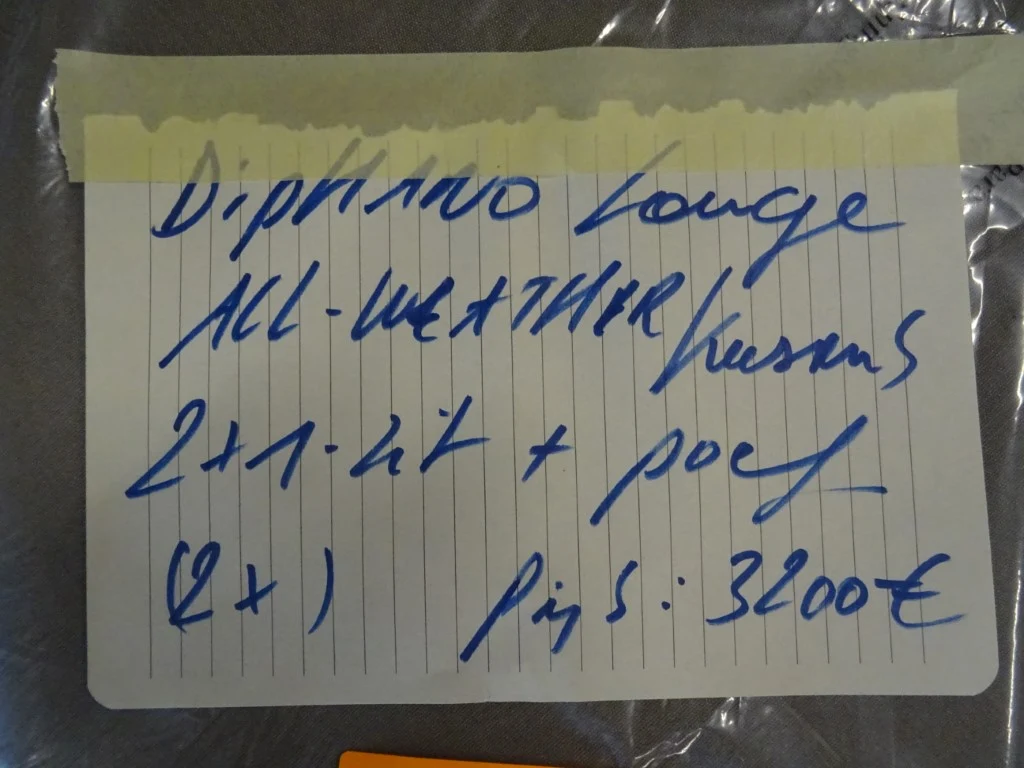 DiPHANO Louge
ALL-WEATHER Kussens
2x1-zit + poef
(2x) Prijs: 3200€